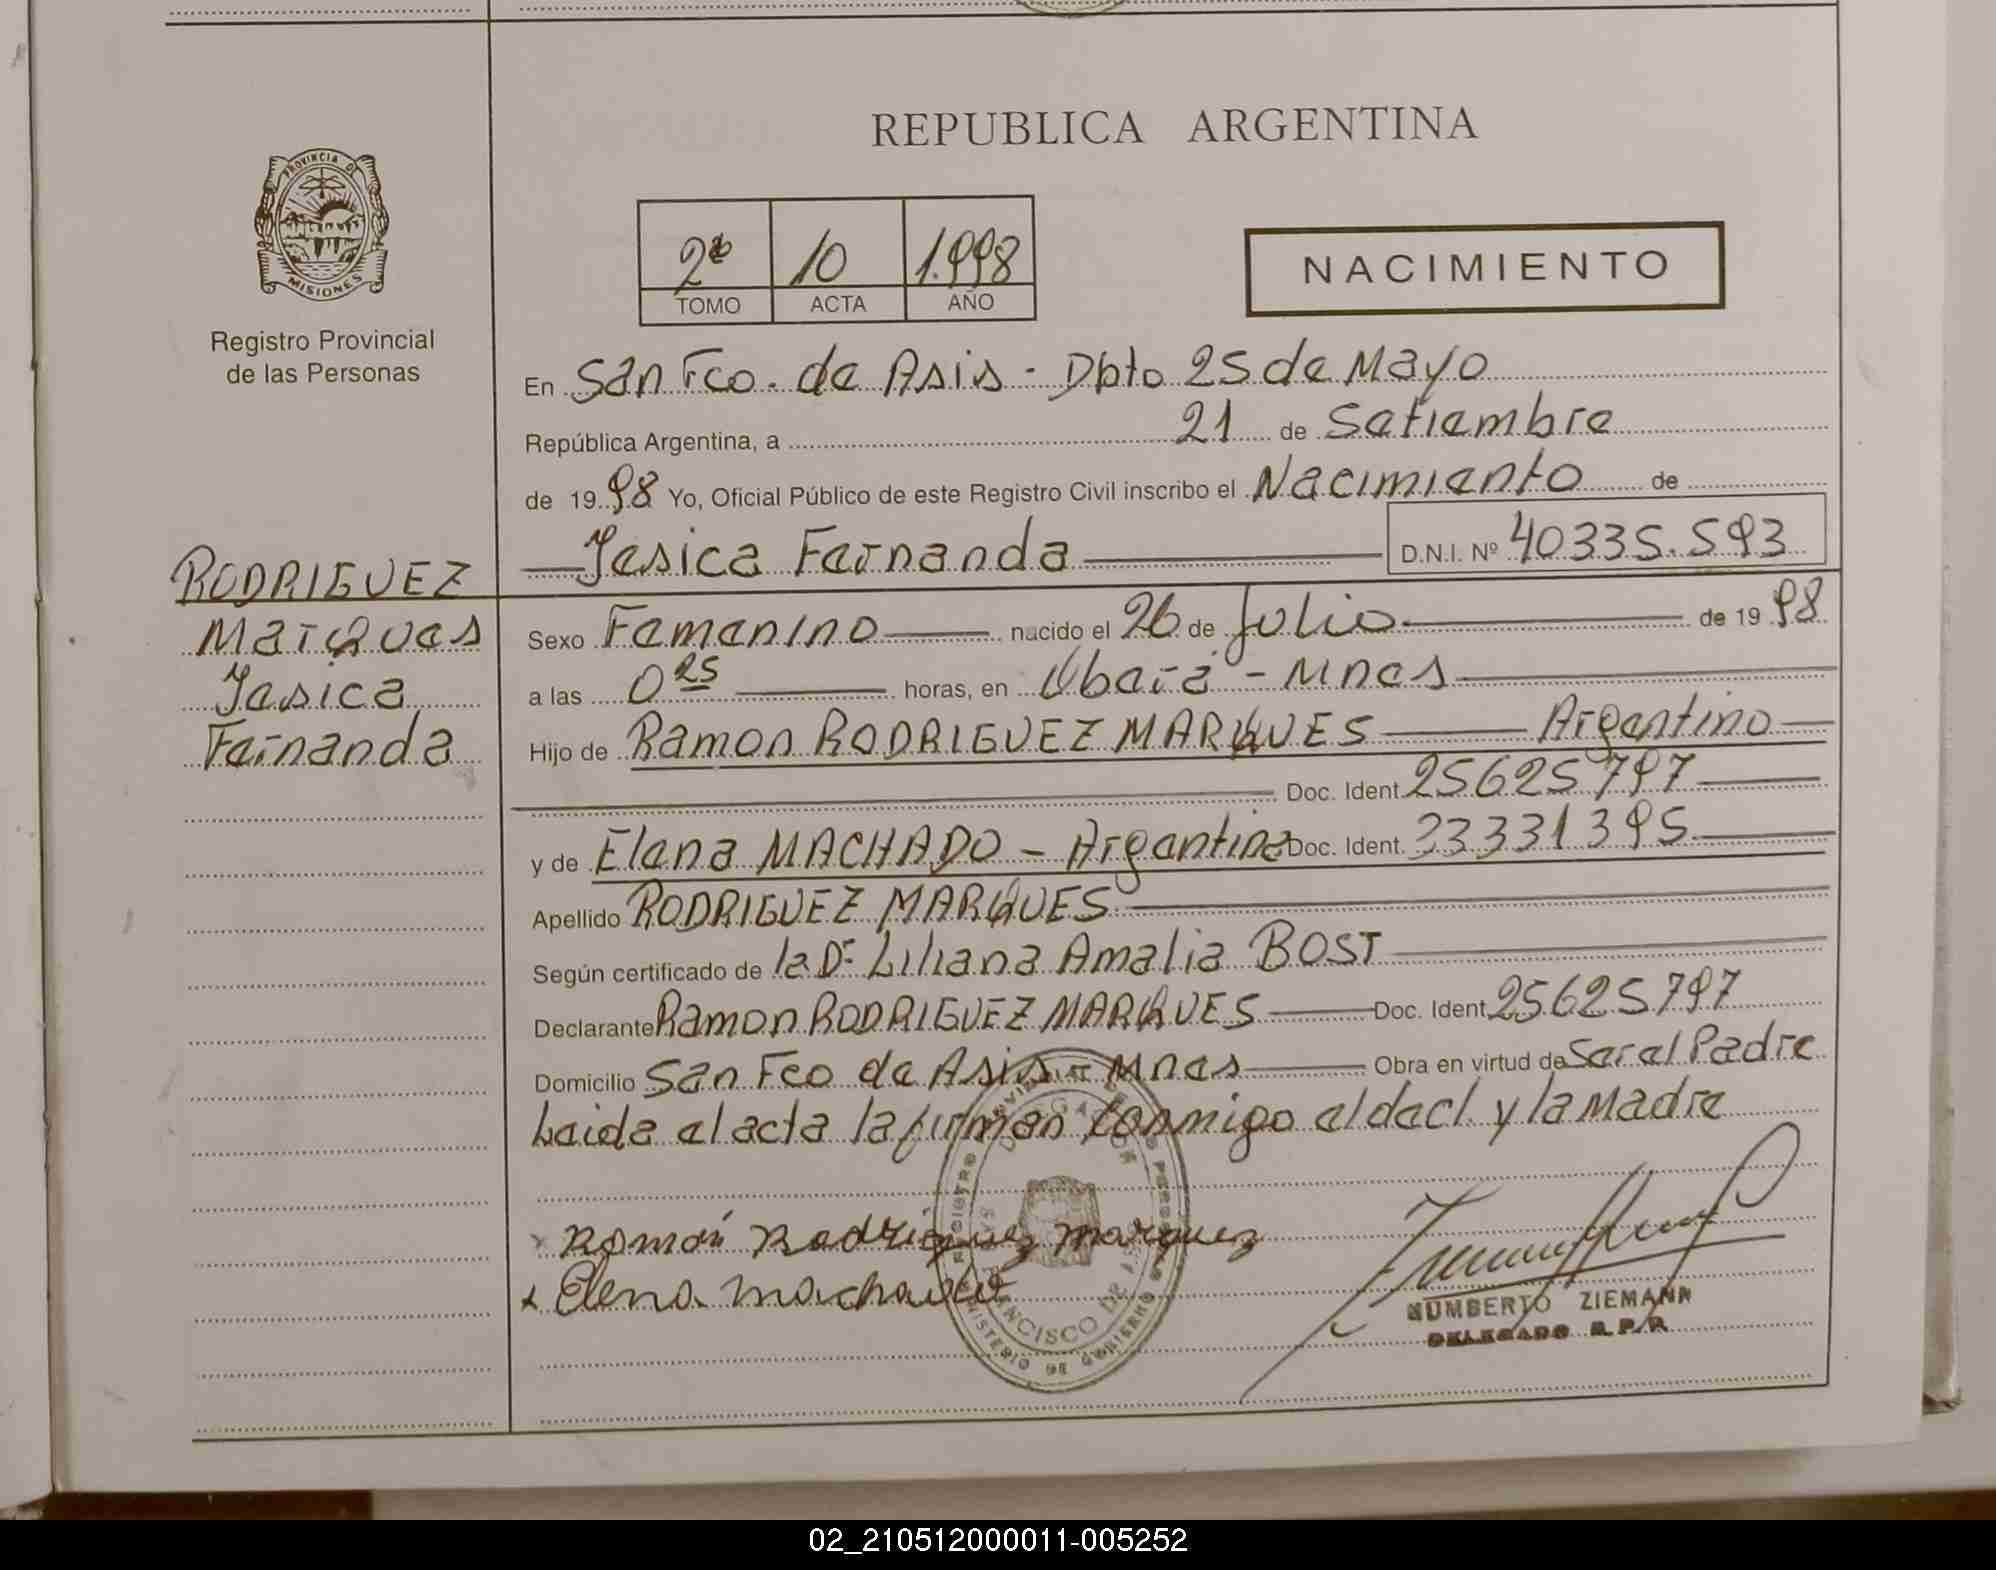 REPUBLICA ARGENTINA
PROVINCIA DE
MISIONES
Registro Provincial
de las Personas
2º 10 1.998
TOMO ACTA AÑO
NACIMIENTO
En San Fco. de Asis - Dpto 25 de Mayo
República Argentina, a 21 de Setiembre
de 19 98 Yo, Oficial Público de este Registro Civil inscribo el Nacimiento de
Yesica Fernanda D.N.I. Nº 40335.593
RODRIGUEZ
Marques
Yesica
Fernanda
Sexo Femenino nacido el 26 de Julio de 19 98
a las 0 25 horas, en Oberá - Mnes
Hijo de Ramon RODRIGUEZ MARQUES Argentino
Doc. Ident. 25625797
y de Elena MACHADO - Argentina Doc. Ident. 33331395
Apellido RODRIGUEZ MARQUES
Según certificado de la Dr Liliana Amalia BOST
Declarante Ramon RODRIGUEZ MARQUES Doc. Ident. 25625797
Domicilio San Fco de Asis - Mnes Obra en virtud de Ser el Padre
Leida el acta la firman conmigo el decl. y la Madre
Román Rodriguez Marquez
x Elena Machado
HUMBERTO ZIEMANN
DELEGADO R.P.P.
02_210512000011-005252